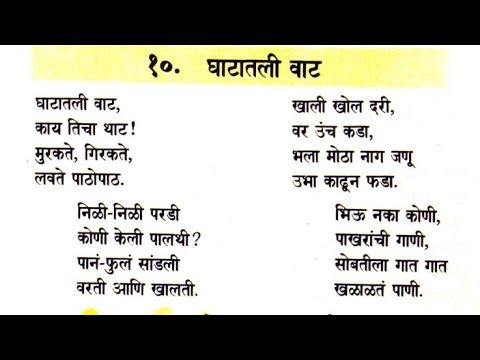 १०. घाटातली वाट
घाटातली वाट,
काय तिचा थाट!
मुरकते, गिरकते,
लवते पाठोपाठ.
निळी-निळी परडी
कोणी केली पालथी?
पानं-फुलं सांडली
वरती आणि खालती.
खाली खोल दरी,
वर उंच कडा,
भला मोठा नाग जणू
उभा काढून फडा.
भिऊ नका कोणी,
पाखरांची गाणी,
सोबतीला गात गात
खळाळतं पाणी.